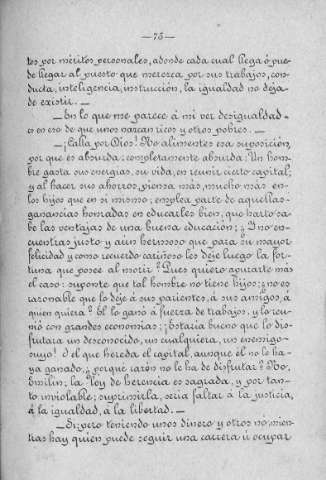 —73—
tos por méritos personales, adonde cada cual llega ó pue-
de llegar al puesto que merezca por sus trabajos, con-
ducta, inteligencia, instrucción, la igualdad no deja
de existir. —
— En lo que me parece á mi ver desigualdad
es en eso de que unos nazcan ricos y otros pobres. —
— ¡Calla por Dios! No alimentes esa suposición,
por que es absurda: completamente absurda: Un hom-
bre gasta sus energías, su vida, en reunir cierto capital;
y al hacer sus ahorros, piensa más, mucho más en-
los hijos que en si mismo; emplea parte de aquellas-
ganancias honradas en educarles bien, que harto sa-
be las ventajas de una buena educación; ¿Y no en-
cuentras justo y aún hermoso que para su mayor
felicidad y como recuerdo cariñoso les deje luego la for-
tuna que posee al morir? Pues quiero apurarte más
el caso: suponte que tal hombre no tiene hijos; ¿no es
razonable que lo deje á sus parientes, á sus amigos, á
quien quiera? El lo ganó á fuerza de trabajos, y lo reu-
nió con grandes economias; ¡Estaria bueno que lo dis-
frutara un desconocido, un cualquiera, un enemigo-
suyo! Y el que hereda el capital, aunque él no le ha-
ya ganado, ¿porque razón no le ha de disfrutar? No,
Emilín; la ley de herencia es sagrada, y por tan-
to inviolable; suprimirla, seria faltar á la justicia,
á la igualdad, á la libertad. —
— Si; pero teniendo unos dinero y otros nó, mien-
tras hay quien puede seguir una carrera ú ocupar